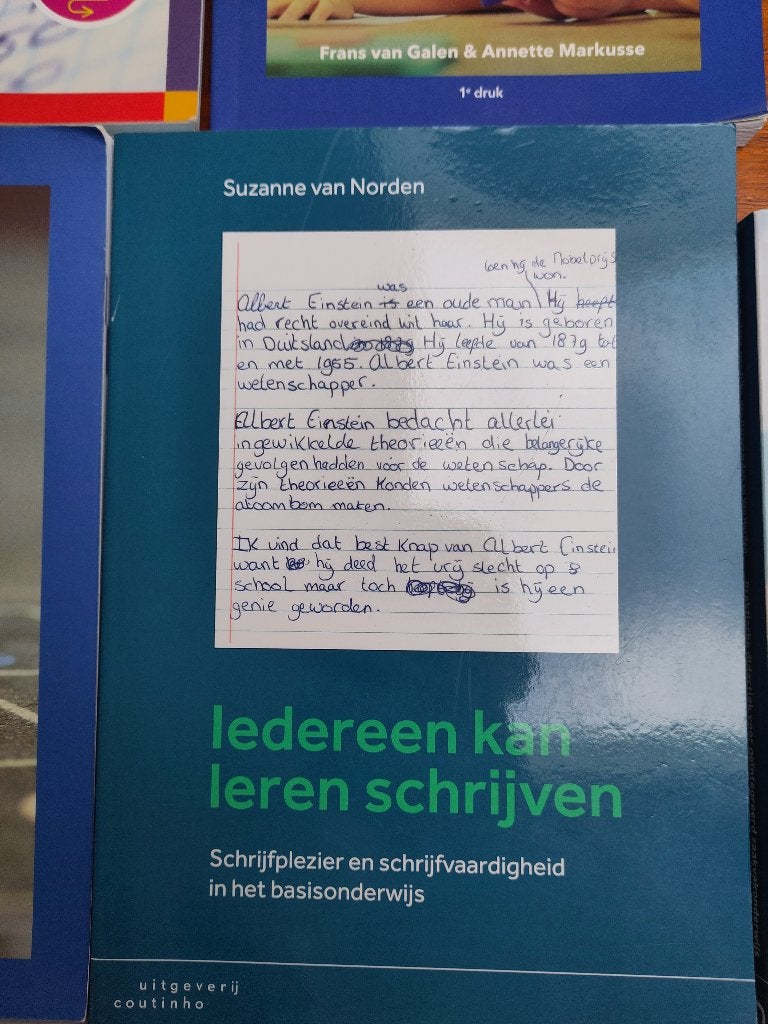 Frans van Galen & Annette Markusse
1e druk
Suzanne van Norden
toen hij de Nobelprijs
won.
was
Albert Einstein is een oude man Hij heeft
had recht overeind wit haar. Hij is geboren
in Duitsland Hij leefde van 1879 tot
en met 1955. Albert Einstein was een
wetenschapper.
Albert Einstein bedacht allerlei
ingewikkelde theorieeën die belangerijke
gevolgen hadden voor de wetenschap. Door
zijn theorieeën konden wetenschappers de
atoombom maken.
Ik vind dat best knap van Albert Einstein
want hij deed het vrij slecht op
school maar toch is hij een
genie geworden.
Iedereen kan
leren schrijven
Schrijfplezier en schrijfvaardigheid
in het basisonderwijs
uitgeverij
coutinho